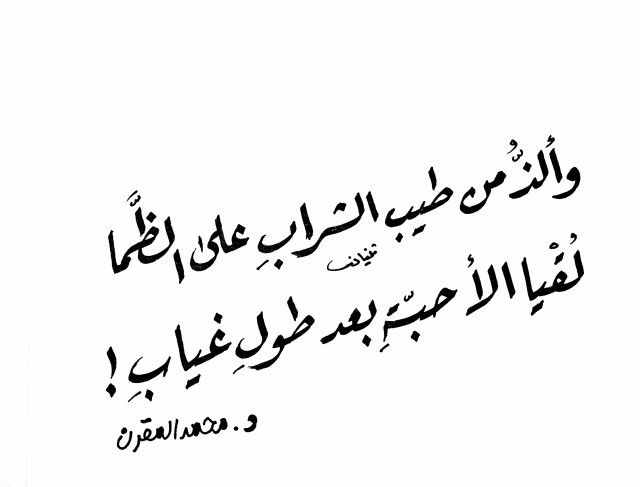 وألذُّ من طيب الشرابِ على الظَّما
لُقْيا الأحبّةِ بعد طولِ غيابِ !
د. محمد المقرن